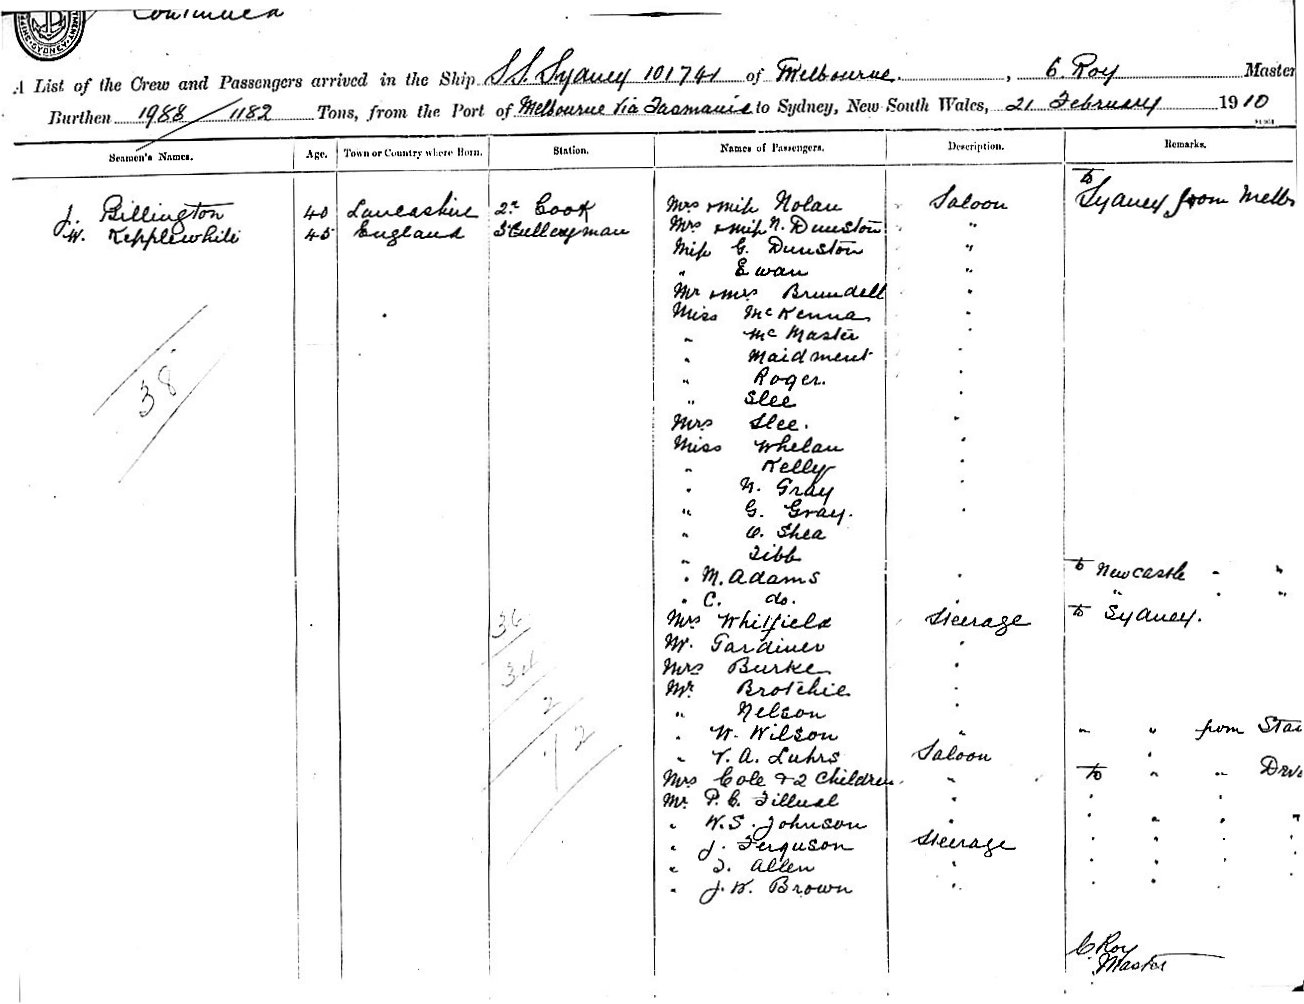 Continued
A List of the Crew and Passengers arrived in the Ship S.S. Sydney 101741 of Melbourne. , C. Roy Master
Burthen 1988/1182 Tons, from the Port of Melbourne Via Tasmania to Sydney, New South Wales, 21 February 1910
Seamen's Names. Age. Town or Country where Born. Station. Names of Passengers. Description. Remarks.
J. Billington 40 Lancashire 2nd Cook Mrs + miss Nolan Saloon to Sydney from Melb
W. Kepplewhite 45 England Mrs + miss N. Dunston "
Miss G. Dunston "
" Ewan "
Mr + mrs Brundell "
Miss McKenna "
" McMaster "
" Maidment "
" Roger. "
" Slee "
Mrs Slee. "
Miss Whelan "
" Kelly "
" N. Gray "
" G. Gray. "
" O. Shea
" Tibb
" M. Adams " to Newcastle " "
" C. do. " " " "
Mrs Whitfield Steerage to Sydney.
Mr. Gardiner "
Mrs Burke "
Mr Brotchie "
" Nelson "
" W. Wilson " " " from
" V. A. Luhrs Saloon "
Mrs Cole + 2 Children " to " "
Mr P. C. "
" W. S. Johnson " " " " "
" J. Ferguson Steerage " " " "
" T. Allen " " " " "
" J. W. Brown " " " "
38
36
34
2
72
C Roy
Master